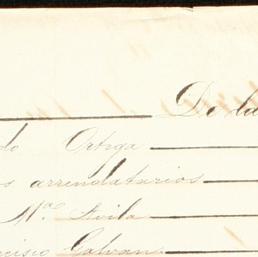 De la
do Ortega
s arrendatarios
Ma. Avila
ncisco Galvan